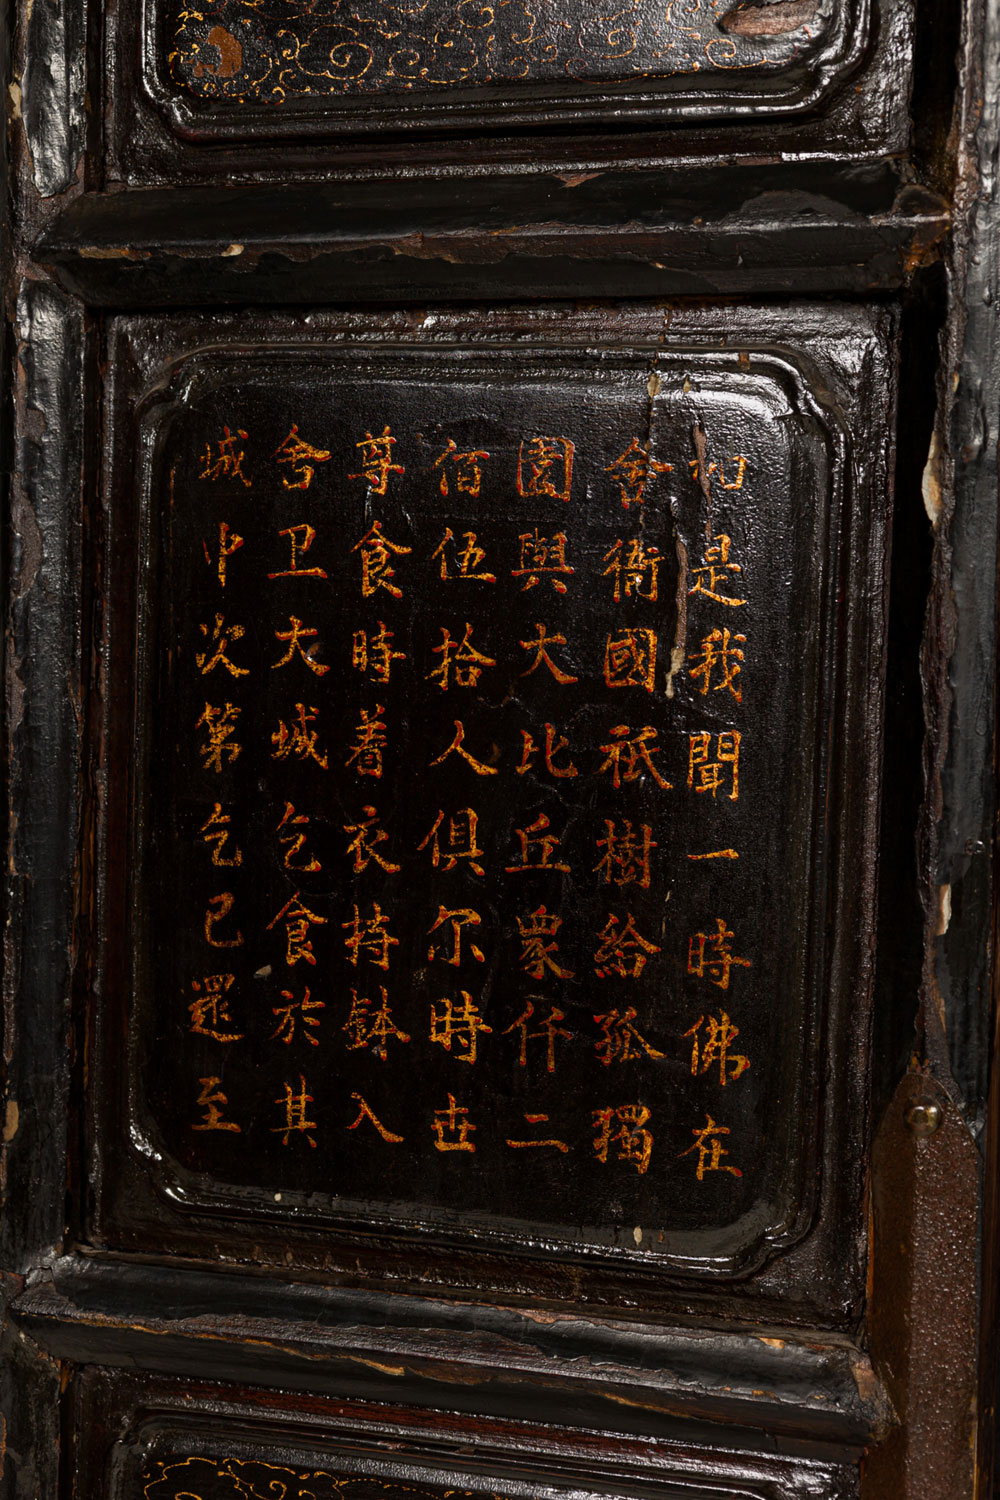 如是我聞一時佛在
舍衛國祇樹給孤獨
園與大比丘眾仟二
佰伍拾人俱尔時世
尊食時着衣持鉢入
舍卫大城乞食於其
城中次第乞已還至